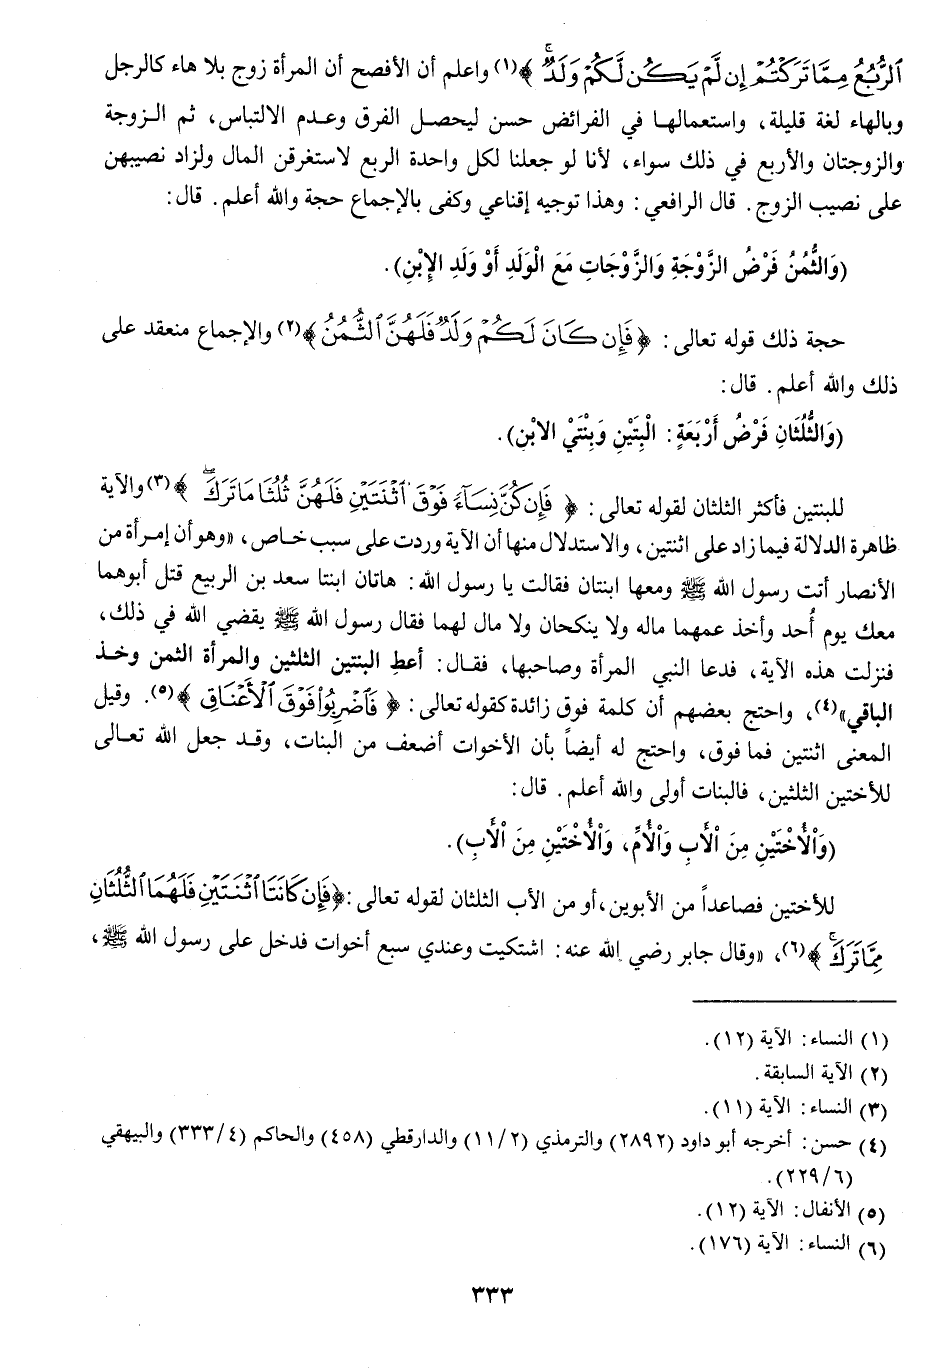 ٱلرُّبُعُ مِمَّا تَرَكْتُمْ إِن لَّمْ يَكُن لَّكُمْ وَلَدٌ ۚ ﴾(١) واعلم أن الأفصح أن المرأة زوج بلا هاء كالرجل
وبالهاء لغة قليلة، واستعمالها في الفرائض حسن ليحصل الفرق وعدم الالتباس، ثم الزوجة
والزوجتان والأربع في ذلك سواء، لأنا لو جعلنا لكل واحدة الربع لاستغرقن المال ولزاد نصيبهن
على نصيب الزوج. قال الرافعي: وهذا توجيه إقناعي وكفى بالإجماع حجة والله أعلم. قال:
(وَالثُّمُنُ فَرْضُ الزَّوْجَةِ وَالزَّوْجَاتِ مَعَ الْوَلَدِ أَوْ وَلَدِ الإِبْنِ).
حجة ذلك قوله تعالى: ﴿ فَإِن كَانَ لَكُمْ وَلَدٌ فَلَهُنَّ ٱلثُّمُنُ ﴾(٢) والإجماع منعقد على
ذلك والله أعلم. قال:
(وَالثُّلُثَانِ فَرْضُ أَرْبَعَةٍ: الْبِنْتَيْنِ وَبِنْتَيْ الابْنِ).
للبنتين فأكثر الثلثان لقوله تعالى: ﴿ فَإِن كُنَّ نِسَآءً فَوْقَ ٱثْنَتَيْنِ فَلَهُنَّ ثُلُثَا مَا تَرَكَ ۖ ﴾(٣) والآية
ظاهرة الدلالة فيما زاد على اثنتين، والاستدلال منها أن الآية وردت على سبب خاص، «وهو أن إمرأة من
الأنصار أتت رسول الله ﷺ ومعها ابنتان فقالت يا رسول الله: هاتان ابنتا سعد بن الربيع قتل أبوهما
معك يوم أُحد وأخذ عمهما ماله ولا ينكحان ولا مال لهما فقال رسول الله ﷺ يقضي الله في ذلك،
فنزلت هذه الآية، فدعا النبي المرأة وصاحبها، فقال: أعطِ البنتين الثلثين والمرأة الثمن وخذ
الباقي»(٤)، واحتج بعضهم أن كلمة فوق زائدة كقوله تعالى: ﴿ فَٱضْرِبُوا۟ فَوْقَ ٱلْأَعْنَاقِ ﴾(٥). وقيل
المعنى اثنتين فما فوق، واحتج له أيضاً بأن الأخوات أضعف من البنات، وقد جعل الله تعالى
للأختين الثلثين، فالبنات أولى والله أعلم. قال:
(وَالْأُخْتَيْنِ مِنَ الْأَبِ وَالْأُمِّ، وَالْأُخْتَيْنِ مِنَ الْأَبِ).
للأختين فصاعداً من الأبوين، أو من الأب الثلثان لقوله تعالى: ﴿فَإِن كَانَتَا ٱثْنَتَيْنِ فَلَهُمَا ٱلثُّلُثَانِ
مِمَّا تَرَكَ ۚ ﴾(٦)، «وقال جابر رضي الله عنه: اشتكيت وعندي سبع أخوات فدخل على رسول الله ﷺ،
(١) النساء: الآية (١٢).
(٢) الآية السابقة.
(٣) النساء: الآية (١١).
(٤) حسن: أخرجه أبو داود (٢٨٩٢) والترمذي (١١/٢) والدارقطي (٤٥٨) والحاكم (٣٣٣/٤) والبيهقي
(٢٢٩/٦).
(٥) الأنفال: الآية (١٢).
(٦) النساء: الآية (١٧٦).
٣٣٣